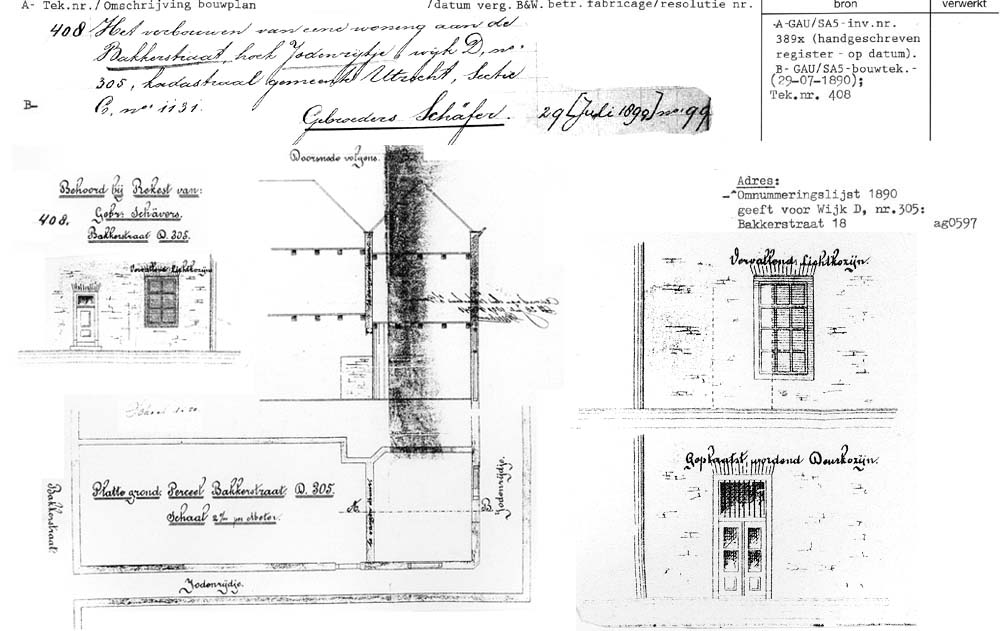 A- Tek.nr./Omschrijving bouwplan /datum verg. B&W.betr.fabricage/resolutie nr. bron verwerkt
408 Het verbouwen van eene woning aan de
Bakkerstraat, hoek Jodenrijtje, wijk D, no.
305, kadastraal gemeente Utrecht, Sectie
B-
C, no. 1131.
Gebroeders Schäfer. 29 [Juli 1890] no. 99
A-GAU/SA5-inv.nr.
389x (handgeschreven
register - op datum).
B- GAU/SA5-bouwtek.-
(29-07-1890);
Tek.nr. 408
Doorsnede volgens.
Behoord bij Rekest van:
408. Gebrs Schävers.
Bakkerstraat D. 305.
Vervallend Lichtkozijn
Adres:
Omnummeringslijst 1890
geeft voor Wijk D, nr.305:
Bakkerstraat 18 ag0597
Vervallend Lichtkozijn.
Geplaatst wordend Deurkozijn.
Platte grond: Perceel Bakkerstraat D. 305.
Schaal 2 c/m per Meter.
A.
B.
Bakkerstraat.
Jodenrijdje.
Jodenrijdje.